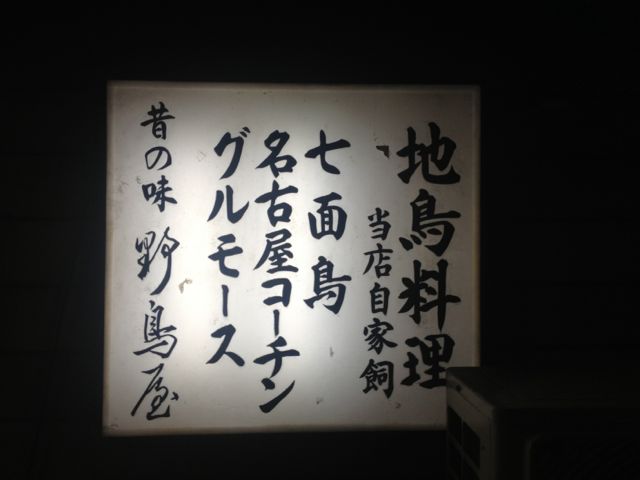 地鳥料理
当店自家飼
七面鳥
名古屋コーチン
グルモース
昔の味 野鳥屋